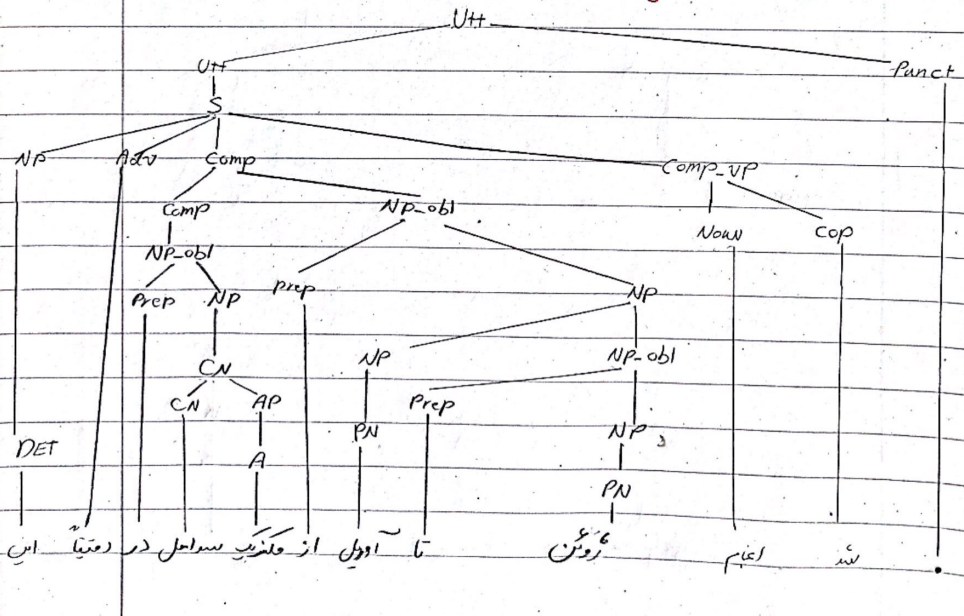 Utt
Utt Punct
S
NP Adv Comp Comp_VP
Comp NP_obl Noun Cop
NP_obl
Prep NP Prep NP
NP NP-obl
CN
CN AP Prep
PN NP
DET A
PN
این دقیقاً در سواحل مکزیک از آوریل تا ژوئن انجام شد .